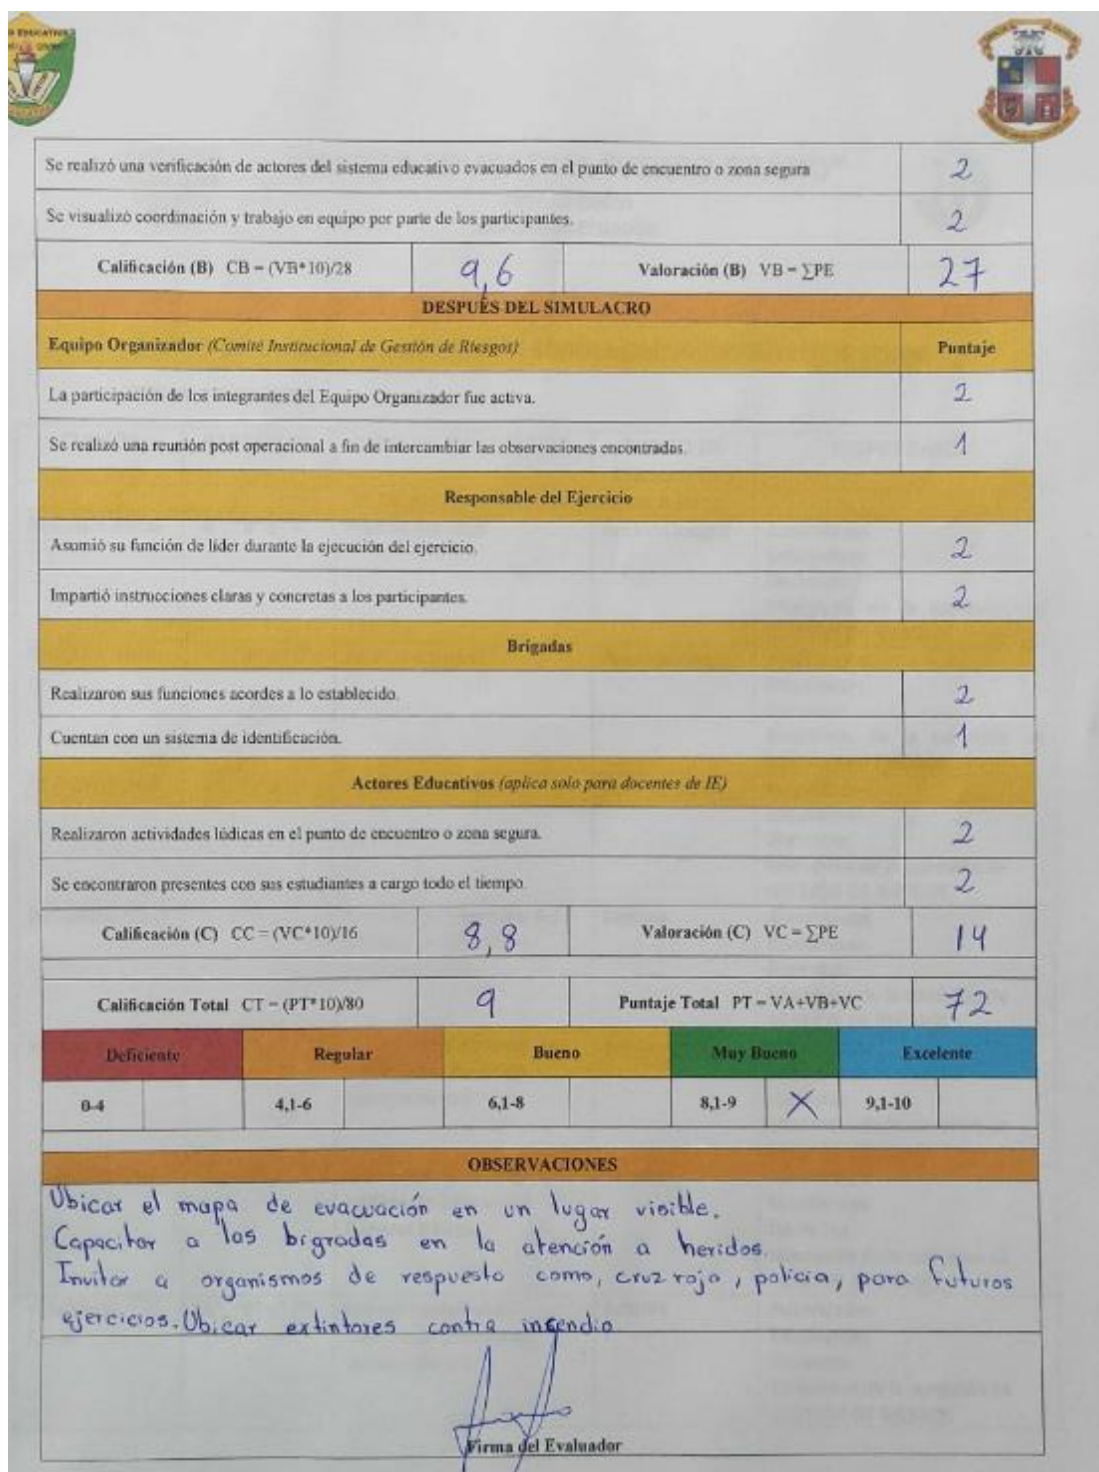 Se realizó una verificación de actores del sistema educativo evacuados en el punto de encuentro o zona segura 2
Se visualizó coordinación y trabajo en equipo por parte de los participantes. 2
Calificación (B) CB = (VB*10)/28 9,6 Valoración (B) VB = ∑PE 27
DESPUÉS DEL SIMULACRO
Equipo Organizador (Comité Institucional de Gestión de Riesgos) Puntaje
La participación de los integrantes del Equipo Organizador fue activa. 2
Se realizó una reunión post operacional a fin de intercambiar las observaciones encontradas. 1
Responsable del Ejercicio
Asumió su función de líder durante la ejecución del ejercicio. 2
Impartió instrucciones claras y concretas a los participantes. 2
Brigadas
Realizaron sus funciones acordes a lo establecido. 2
Cuentan con un sistema de identificación. 1
Actores Educativos (aplica solo para docentes de IE)
Realizaron actividades lúdicas en el punto de encuentro o zona segura. 2
Se encontraron presentes con sus estudiantes a cargo todo el tiempo. 2
Calificación (C) CC = (VC*10)/16 8,8 Valoración (C) VC = ∑PE 14
Calificación Total CT = (PT*10)/80 9 Puntaje Total PT = VA+VB+VC 72
Deficiente Regular Bueno Muy Bueno Excelente
0-4 4,1-6 6,1-8 8,1-9 X 9,1-10
OBSERVACIONES
Ubicar el mapa de evacuación en un lugar visible.
Capacitar a las bigradas en la atención a heridos.
Invitar a organismos de respuesta como, cruz roja, policia, para futuros
ejercicios. Ubicar extintores contra incendio
Firma del Evaluador